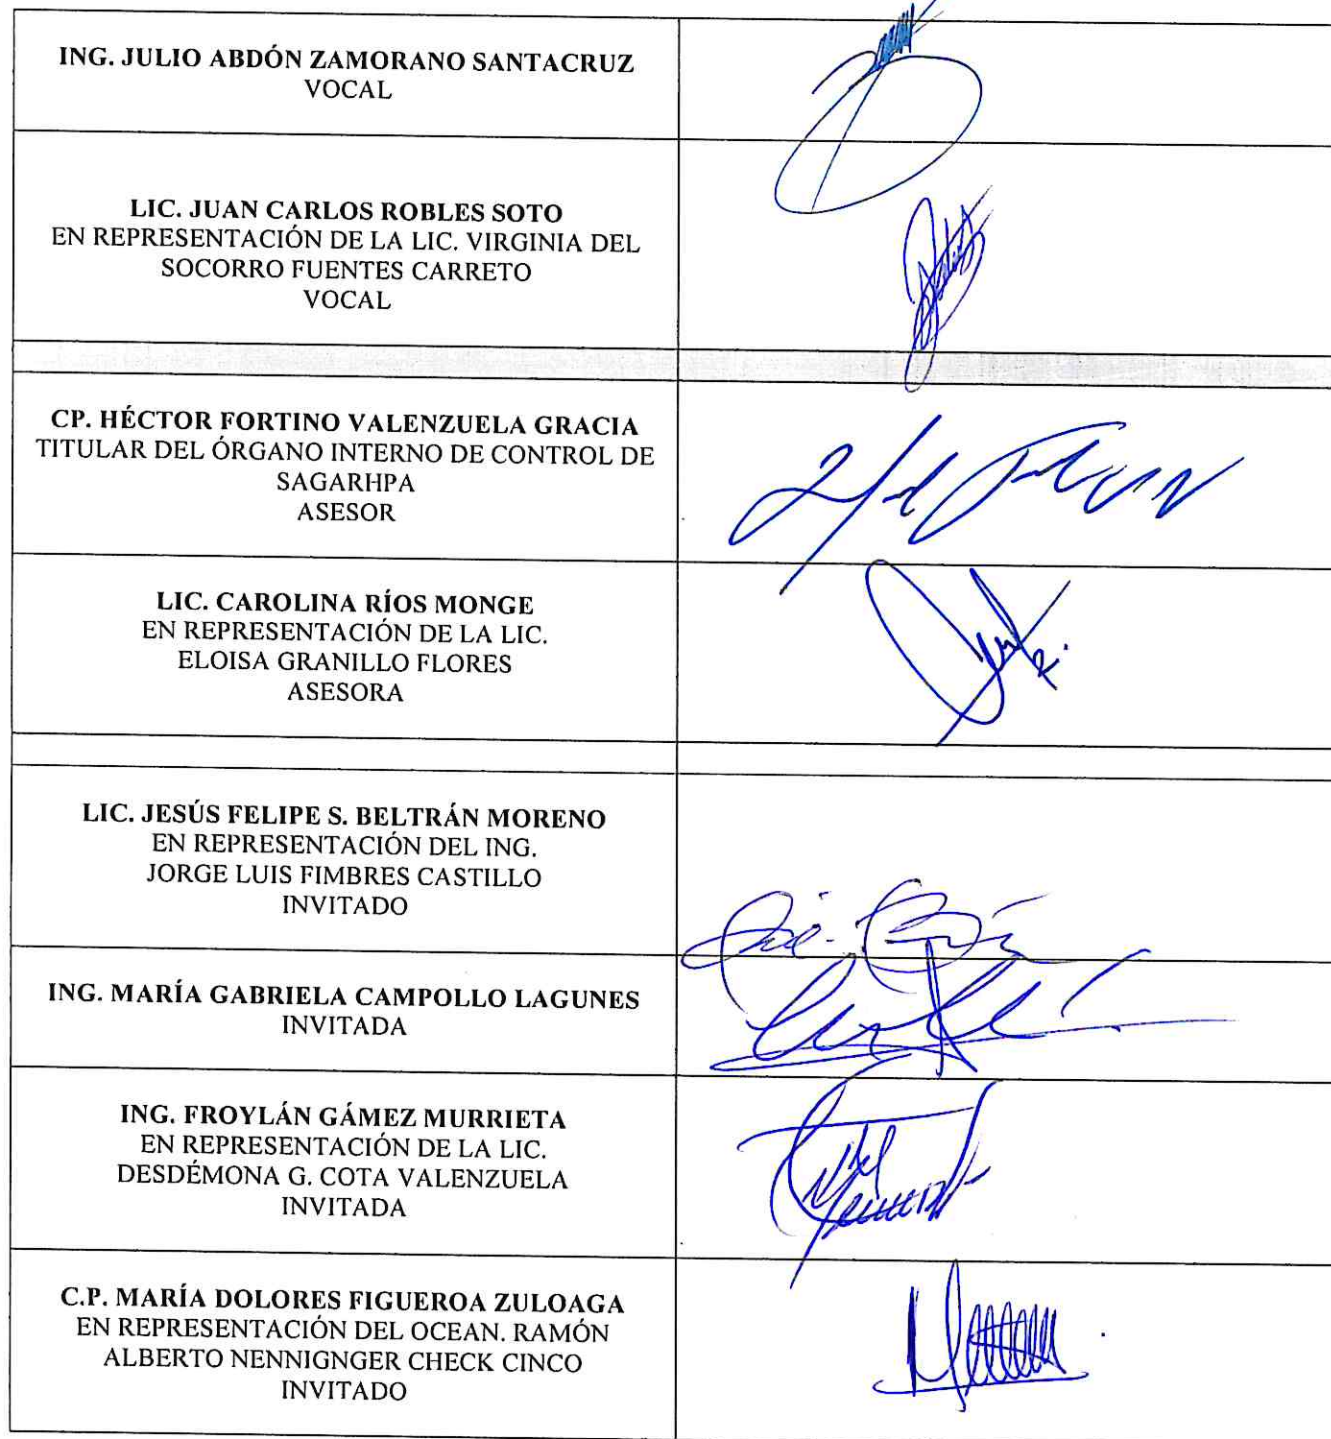 ING. JULIO ABDÓN ZAMORANO SANTACRUZ
VOCAL
LIC. JUAN CARLOS ROBLES SOTO
EN REPRESENTACIÓN DE LA LIC. VIRGINIA DEL
SOCORRO FUENTES CARRETO
VOCAL
CP. HÉCTOR FORTINO VALENZUELA GRACIA
TITULAR DEL ÓRGANO INTERNO DE CONTROL DE
SAGARHPA
ASESOR
LIC. CAROLINA RÍOS MONGE
EN REPRESENTACIÓN DE LA LIC.
ELOISA GRANILLO FLORES
ASESORA
LIC. JESÚS FELIPE S. BELTRÁN MORENO
EN REPRESENTACIÓN DEL ING.
JORGE LUIS FIMBRES CASTILLO
INVITADO
ING. MARÍA GABRIELA CAMPOLLO LAGUNES
INVITADA
ING. FROYLÁN GÁMEZ MURRIETA
EN REPRESENTACIÓN DE LA LIC.
DESDÉMONA G. COTA VALENZUELA
INVITADA
C.P. MARÍA DOLORES FIGUEROA ZULOAGA
EN REPRESENTACIÓN DEL OCEAN. RAMÓN
ALBERTO NENNIGNGER CHECK CINCO
INVITADO